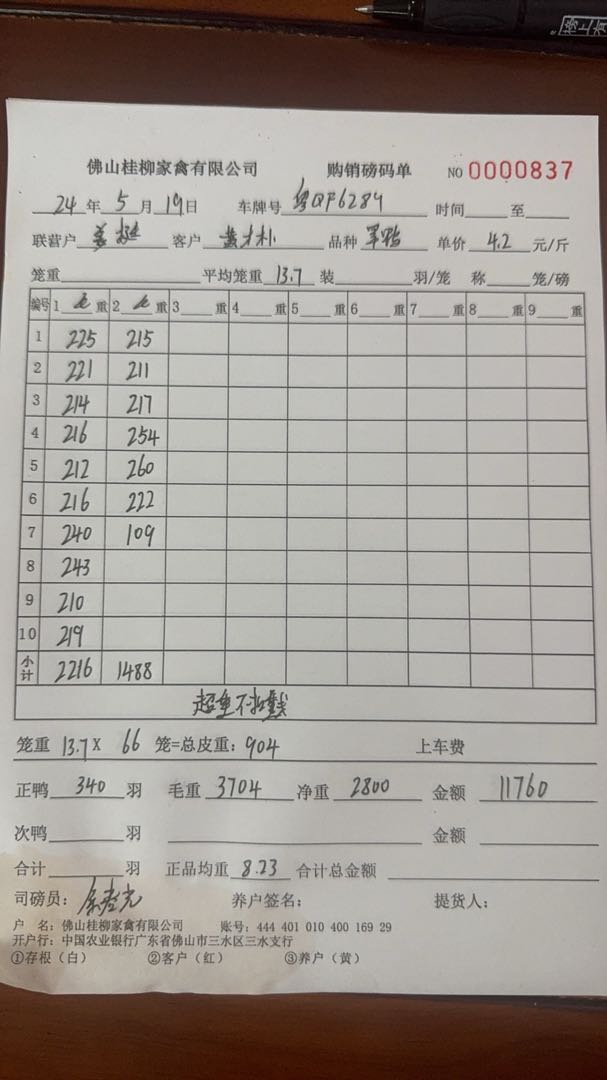 佛山桂柳家禽有限公司 购销磅码单 NO 0000837
24年5月19日 车牌号 粤QF6289 时间 至
联营户 客户 黄才朴 品种 单价 4.2 元/斤
笼重 平均笼重 13.7 装 羽/笼 称 笼/磅
编号 1 毛 重 2 毛 重 3 重 4 重 5 重 6 重 7 重 8 重 9 重
1 225 215
2 221 211
3 214 217
4 216 254
5 212 260
6 216 222
7 240 109
8 243
9 210
10 219
小计 2216 1488
超重不扣钱
笼重 13.7 X 66 笼=总皮重: 904 上车费
正鸭 340 羽 毛重 3704 净重 2800 金额 11760
次鸭 羽 金额
合计 羽 正品均重 8.23 合计总金额
司磅员: 养户签名: 提货人:
户 名: 佛山桂柳家禽有限公司 账号: 444 401 010 400 169 29
开户行: 中国农业银行广东省佛山市三水区三水支行
①存根(白) ②客户(红) ③养户(黄)